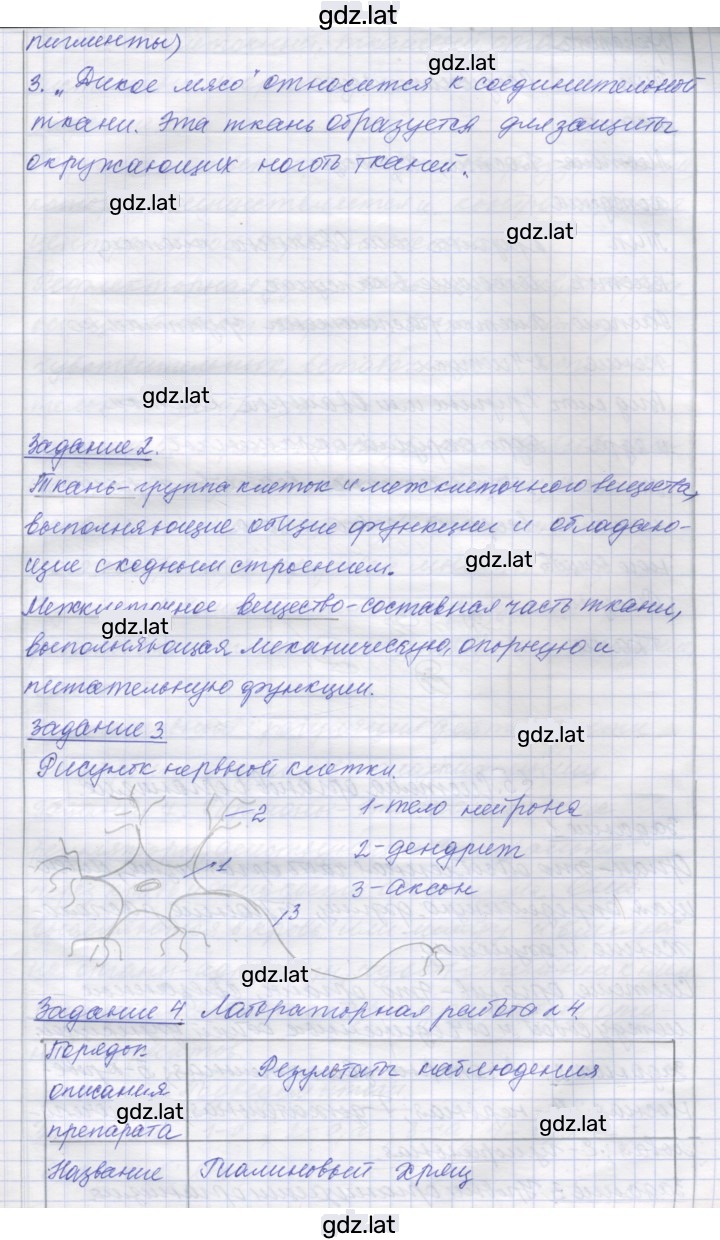 gdz.lat
пигменты)
gdz.lat
3. „Дикое мясо" относится к соединительной
ткани. Эта ткань образуется для защиты
окружающих ноготь тканей.
gdz.lat
gdz.lat
gdz.lat
Задание 2.
Ткань - группа клеток и межклеточного вещества,
выполняющие общие функции и обладаю-
щие сходным строением.
gdz.lat
Межклеточное вещество - составная часть ткани,
gdz.lat
выполняющая механическую, опорную и
питательную функции.
Задание 3.
gdz.lat
Рисунок нервной клетки.
2
1 - тело нейрона
2 - дендрит
1
3 - аксон
3
gdz.lat
Задание 4. Лабораторная работа №4.
Порядок описания препарата
Результаты наблюдения
gdz.lat
gdz.lat
Название Гиалиновый хрящ
gdz.lat